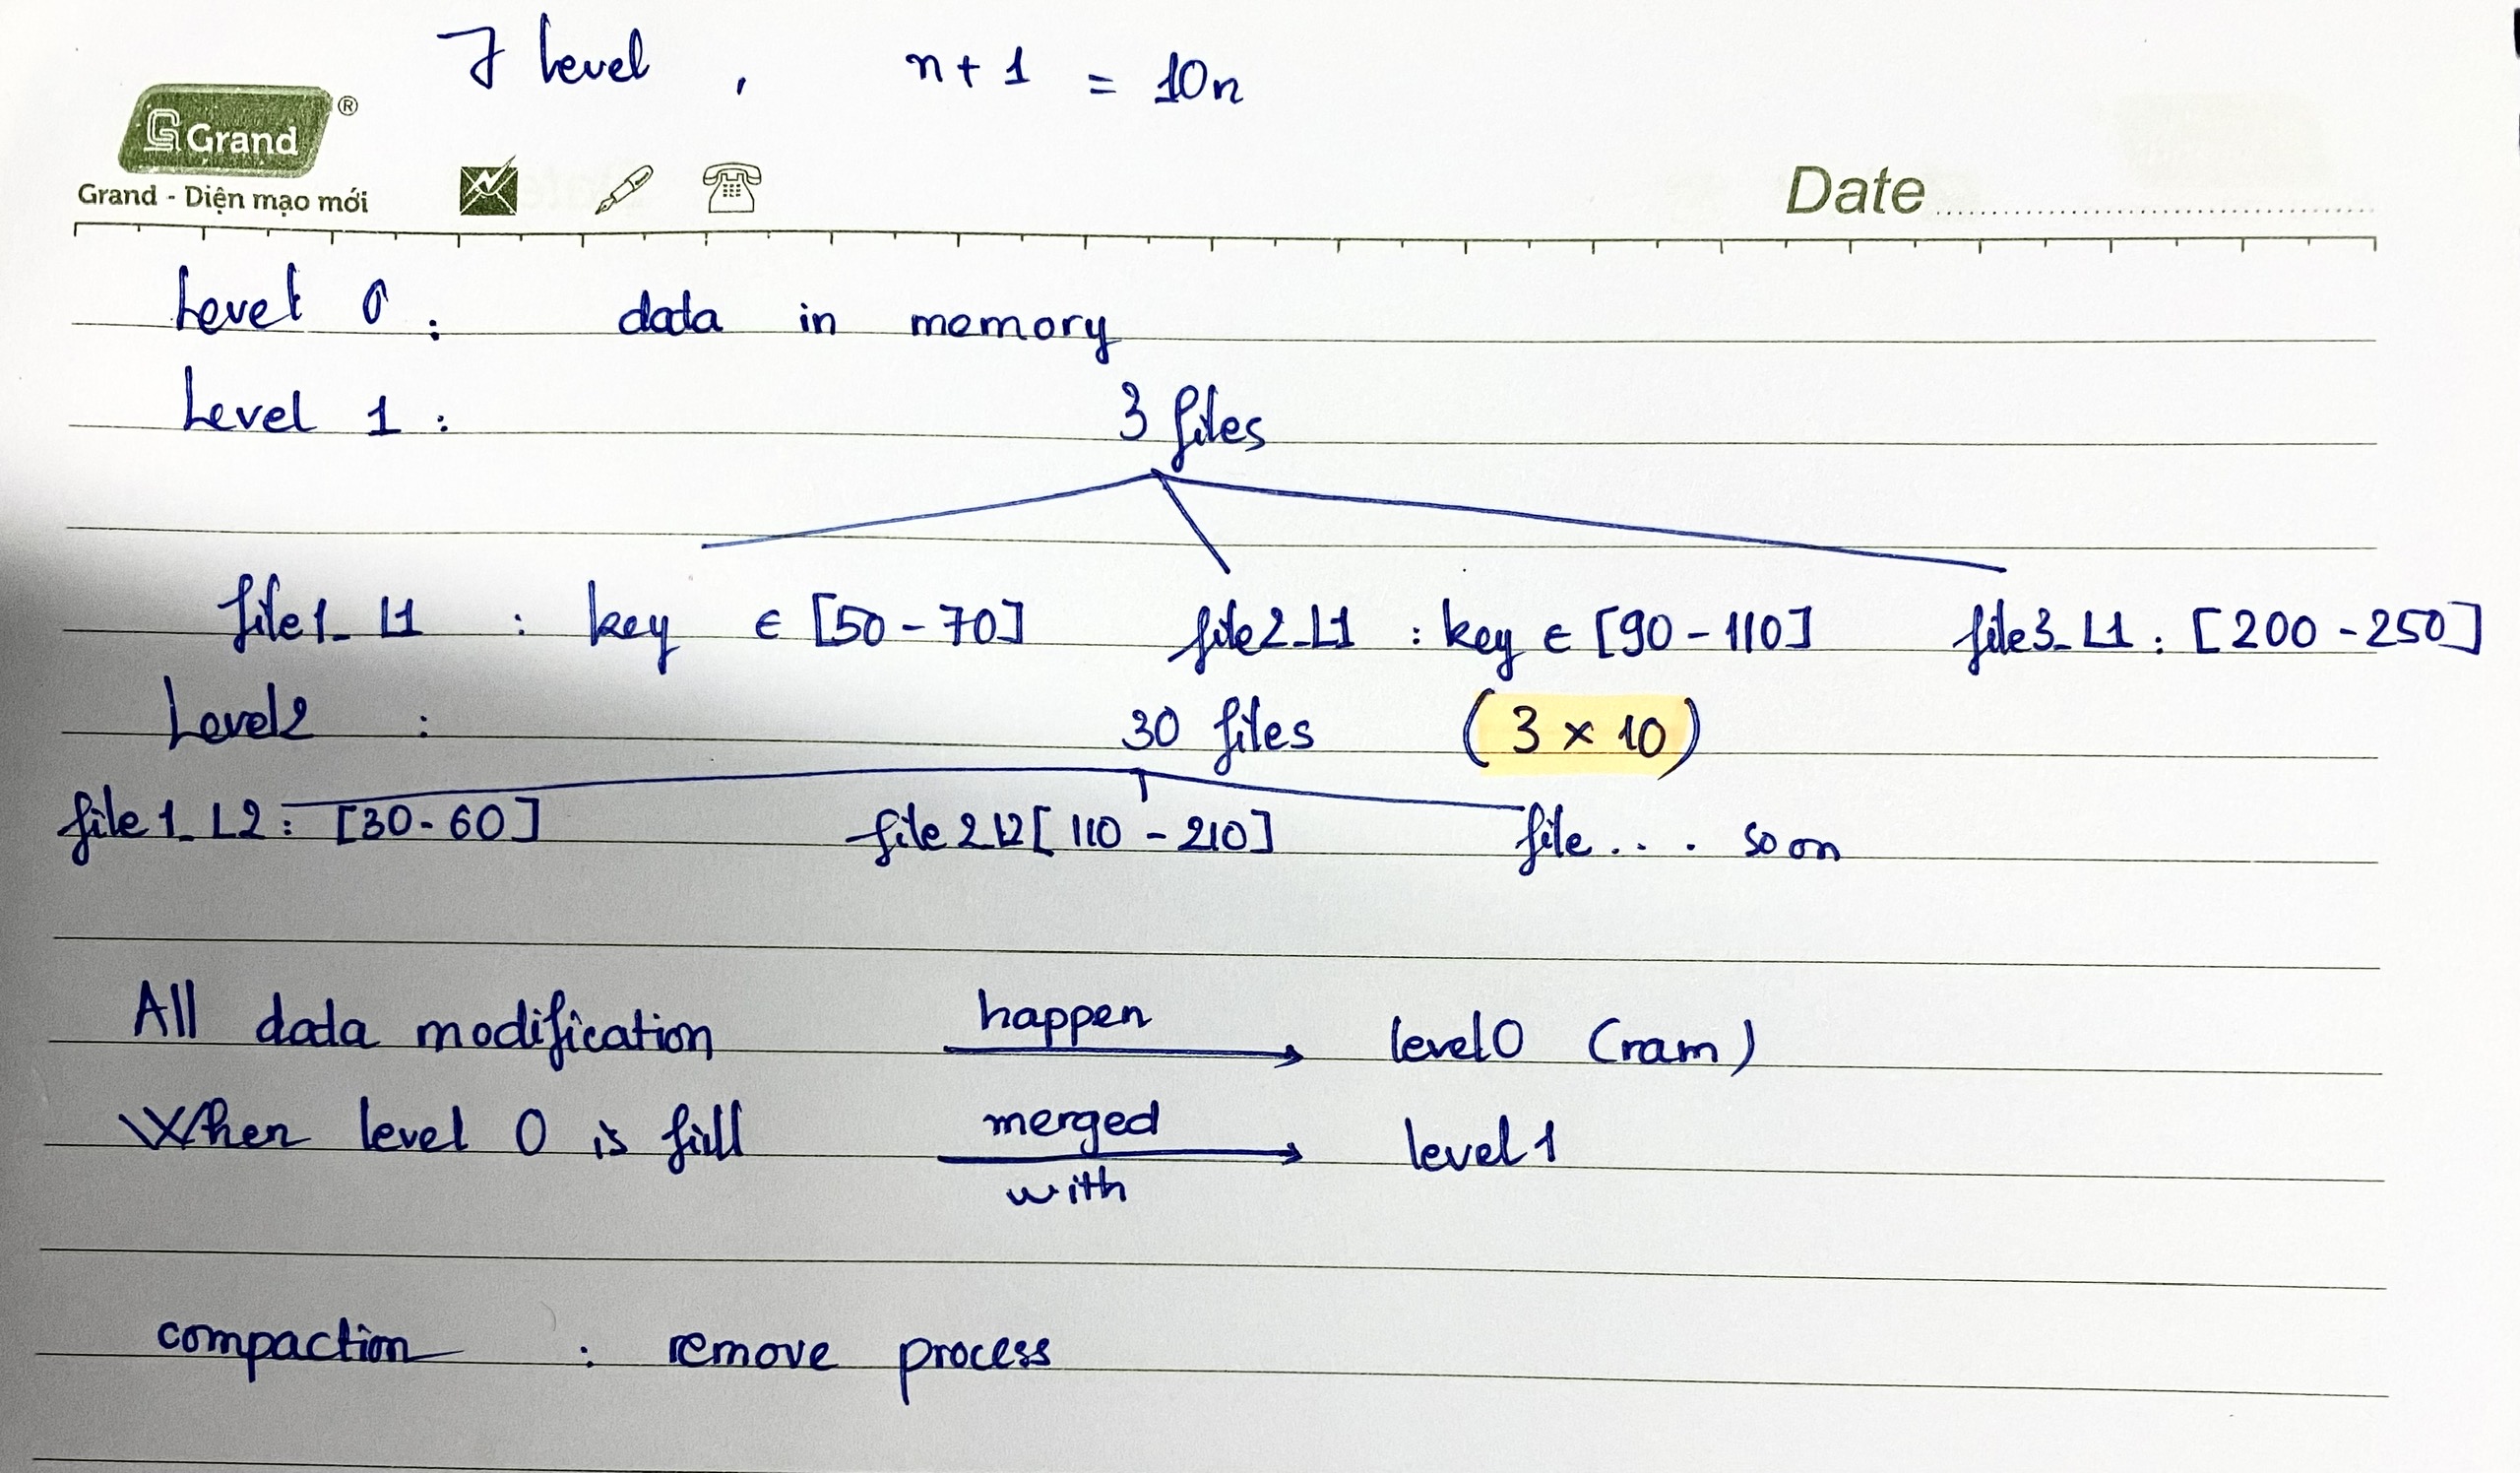 7 level , n + 1 = 10n
G Grand ®
Grand - Diện mạo mới
Date
Level 0 : data in memory
Level 1 : 3 files
file1_L1 : key ∈ [50 - 70] file2_L1 : key ∈ [90 - 110] file3_L1 : [200 - 250]
Level2 : 30 files (3 × 10)
file1_L2 : [30 - 60] file2L2[110 - 210] file... soon
All data modification happen → level0 (ram)
When level 0 is full merged with → level1
compaction : remove process